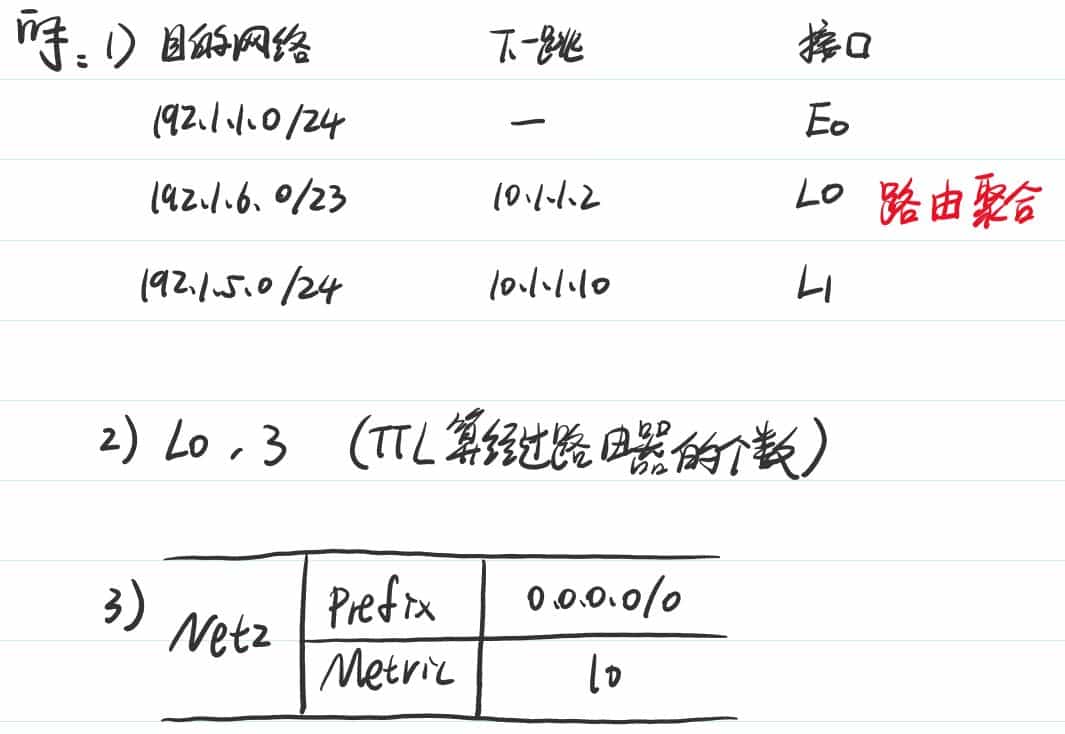 1) 目的网络 下一跳 接口
192.1.1.0/24 — E0
192.1.6.0/23 10.1.1.2 L0 路由聚合
192.1.5.0/24 10.1.1.10 L1
2) L0，3 (TTL算经过路由器的个数)
3) Net2 Prefix 0.0.0.0/0
Metric 10